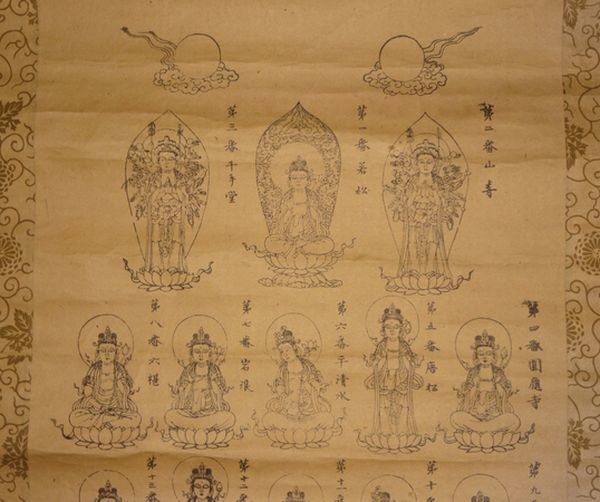 第二番山寺
第一番若松
第三番千手堂
第四番圓應寺
第五番唐松
第六番平清水
第七番岩浪
第八番六椹
第九
第十
第十一
第十二
第十三番